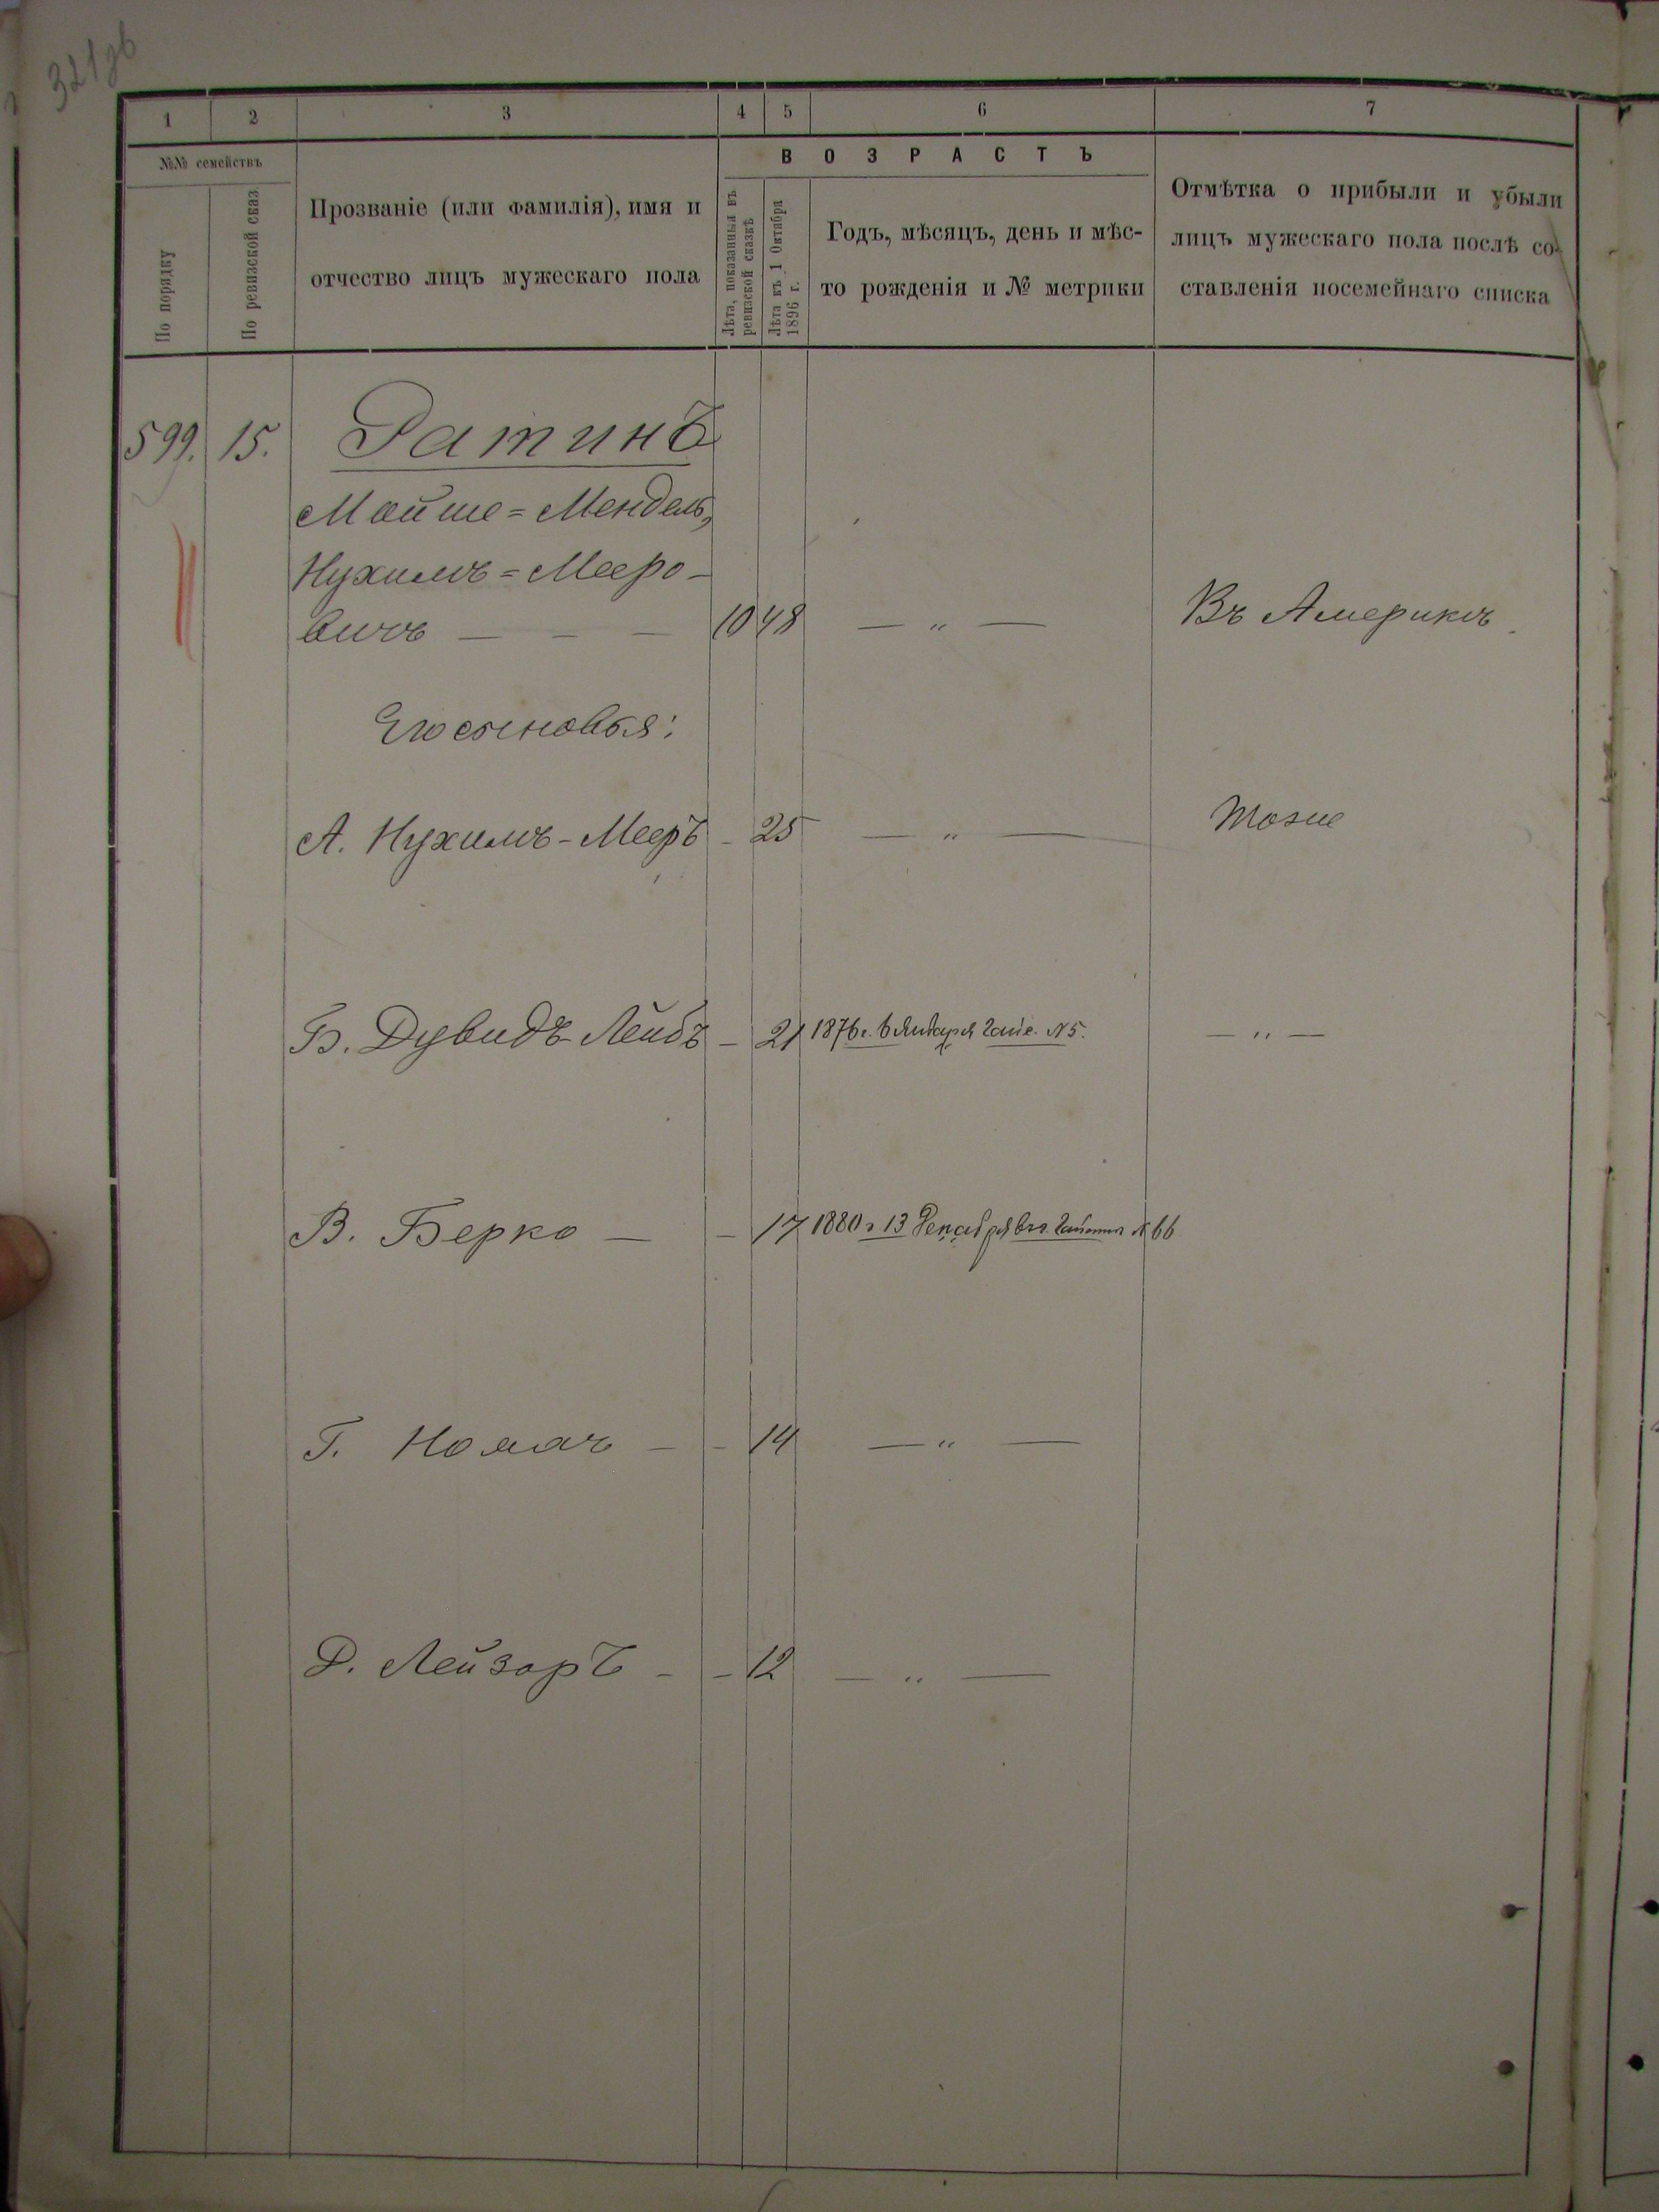 321об
1 2 3 4 5 6 7
№№ семействъ
По порядку
По ревизской сказ
Прозваніе (или фамилія), имя и
отчество лицъ мужескаго пола
ВОЗРАСТЪ
Лѣта, показанныя въ
ревизской сказкѣ
Лѣта къ 1 Октября
1896 г.
Годъ, мѣсяцъ, день и мѣс-
то рожденія и № метрики
Отмѣтка о прибыли и убыли
лицъ мужескаго пола послѣ со-
ставленія посемейнаго списка
599. 15. Ратинъ
Мойше=Мендель,
Нухимъ=Мееро-
вичъ — - — 10 48 — „ — Въ Америкѣ.
Его сыновья:
А. Нухимъ-Мееръ - 25 — „ — тоже
Б. Дувидъ-Лейбъ - 21 1876 г. 6 Января № 5. — „ —
В. Берко — - 17 1880 г 13 Декабря № 66
Г. — - 14 — „ —
Д. Лейзоръ - - 12 — „ —